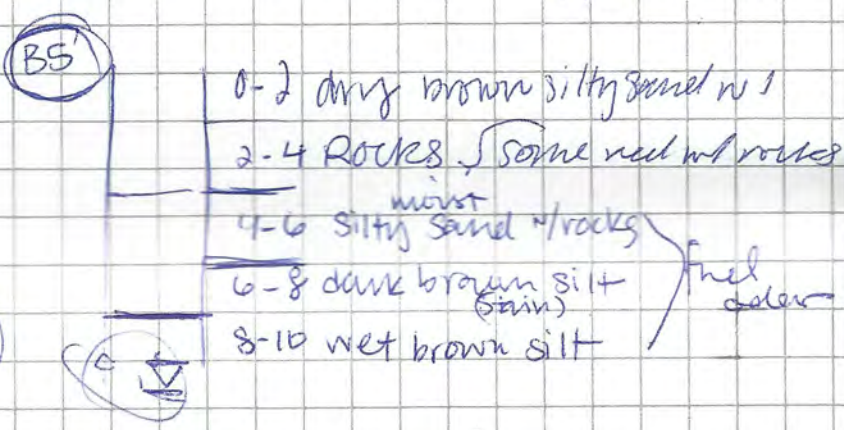 B5'
0-2 dry brown silty sand w/
2-4 Rocks, some red w/ rocks
moist
4-6 Silty Sand w/rocks
6-8 dark brown silt
(stain)
fuel
odor
8-10 wet brown silt